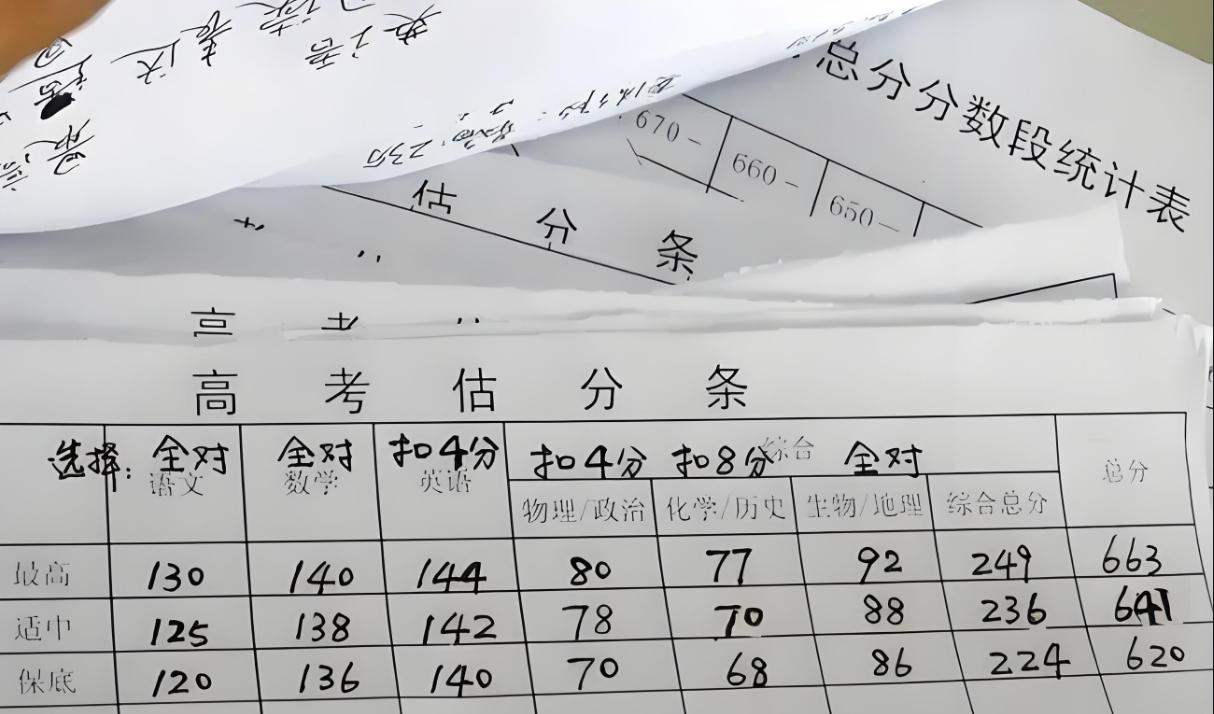 总分分数段统计表
670- 660- 650-
估分条
高考估分条
选择: 全对 全对 扣4分 扣4分 扣8分 全对
语文 数学 英语 综合 总分
物理/政治 化学/历史 生物/地理 综合总分
最高 130 140 144 80 77 92 249 663
适中 125 138 142 78 70 88 236 641
保底 120 136 140 70 68 86 224 620